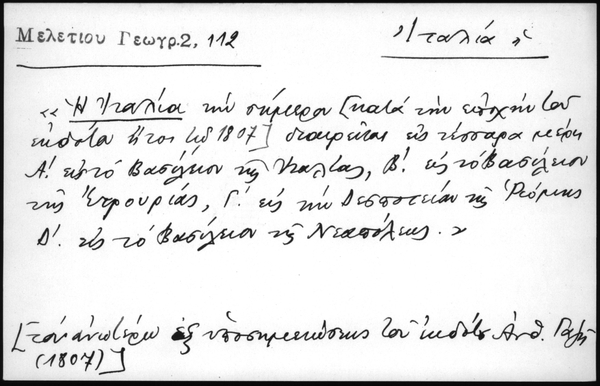 Μελετίου Γεωγρ. 2, 112
« Ἰταλία »
« Ἡ Ἰταλία τὴν σήμερον [κατὰ τὴν ἐποχὴν τοῦ
ἐκδότου ἤτοι 1807] διαιρεῖται εἰς τέσσαρα μέρη
Α΄. εἰς τὸ Βασίλειον τῆς Ἰταλίας, Β΄. εἰς τὸ Βασίλειον
τῆς Ἑτρουρίας, Γ΄. εἰς τὴν Δεσποτείαν τῆς Ῥώμης
Δ΄. εἰς τὸ Βασίλειον τῆς Νεαπόλεως. »
[τὸ ἀνωτέρω ἐξ ὑποσημειώσεως τοῦ ἐκδότου Ἀνθ. Γαζῆ
(1807)]